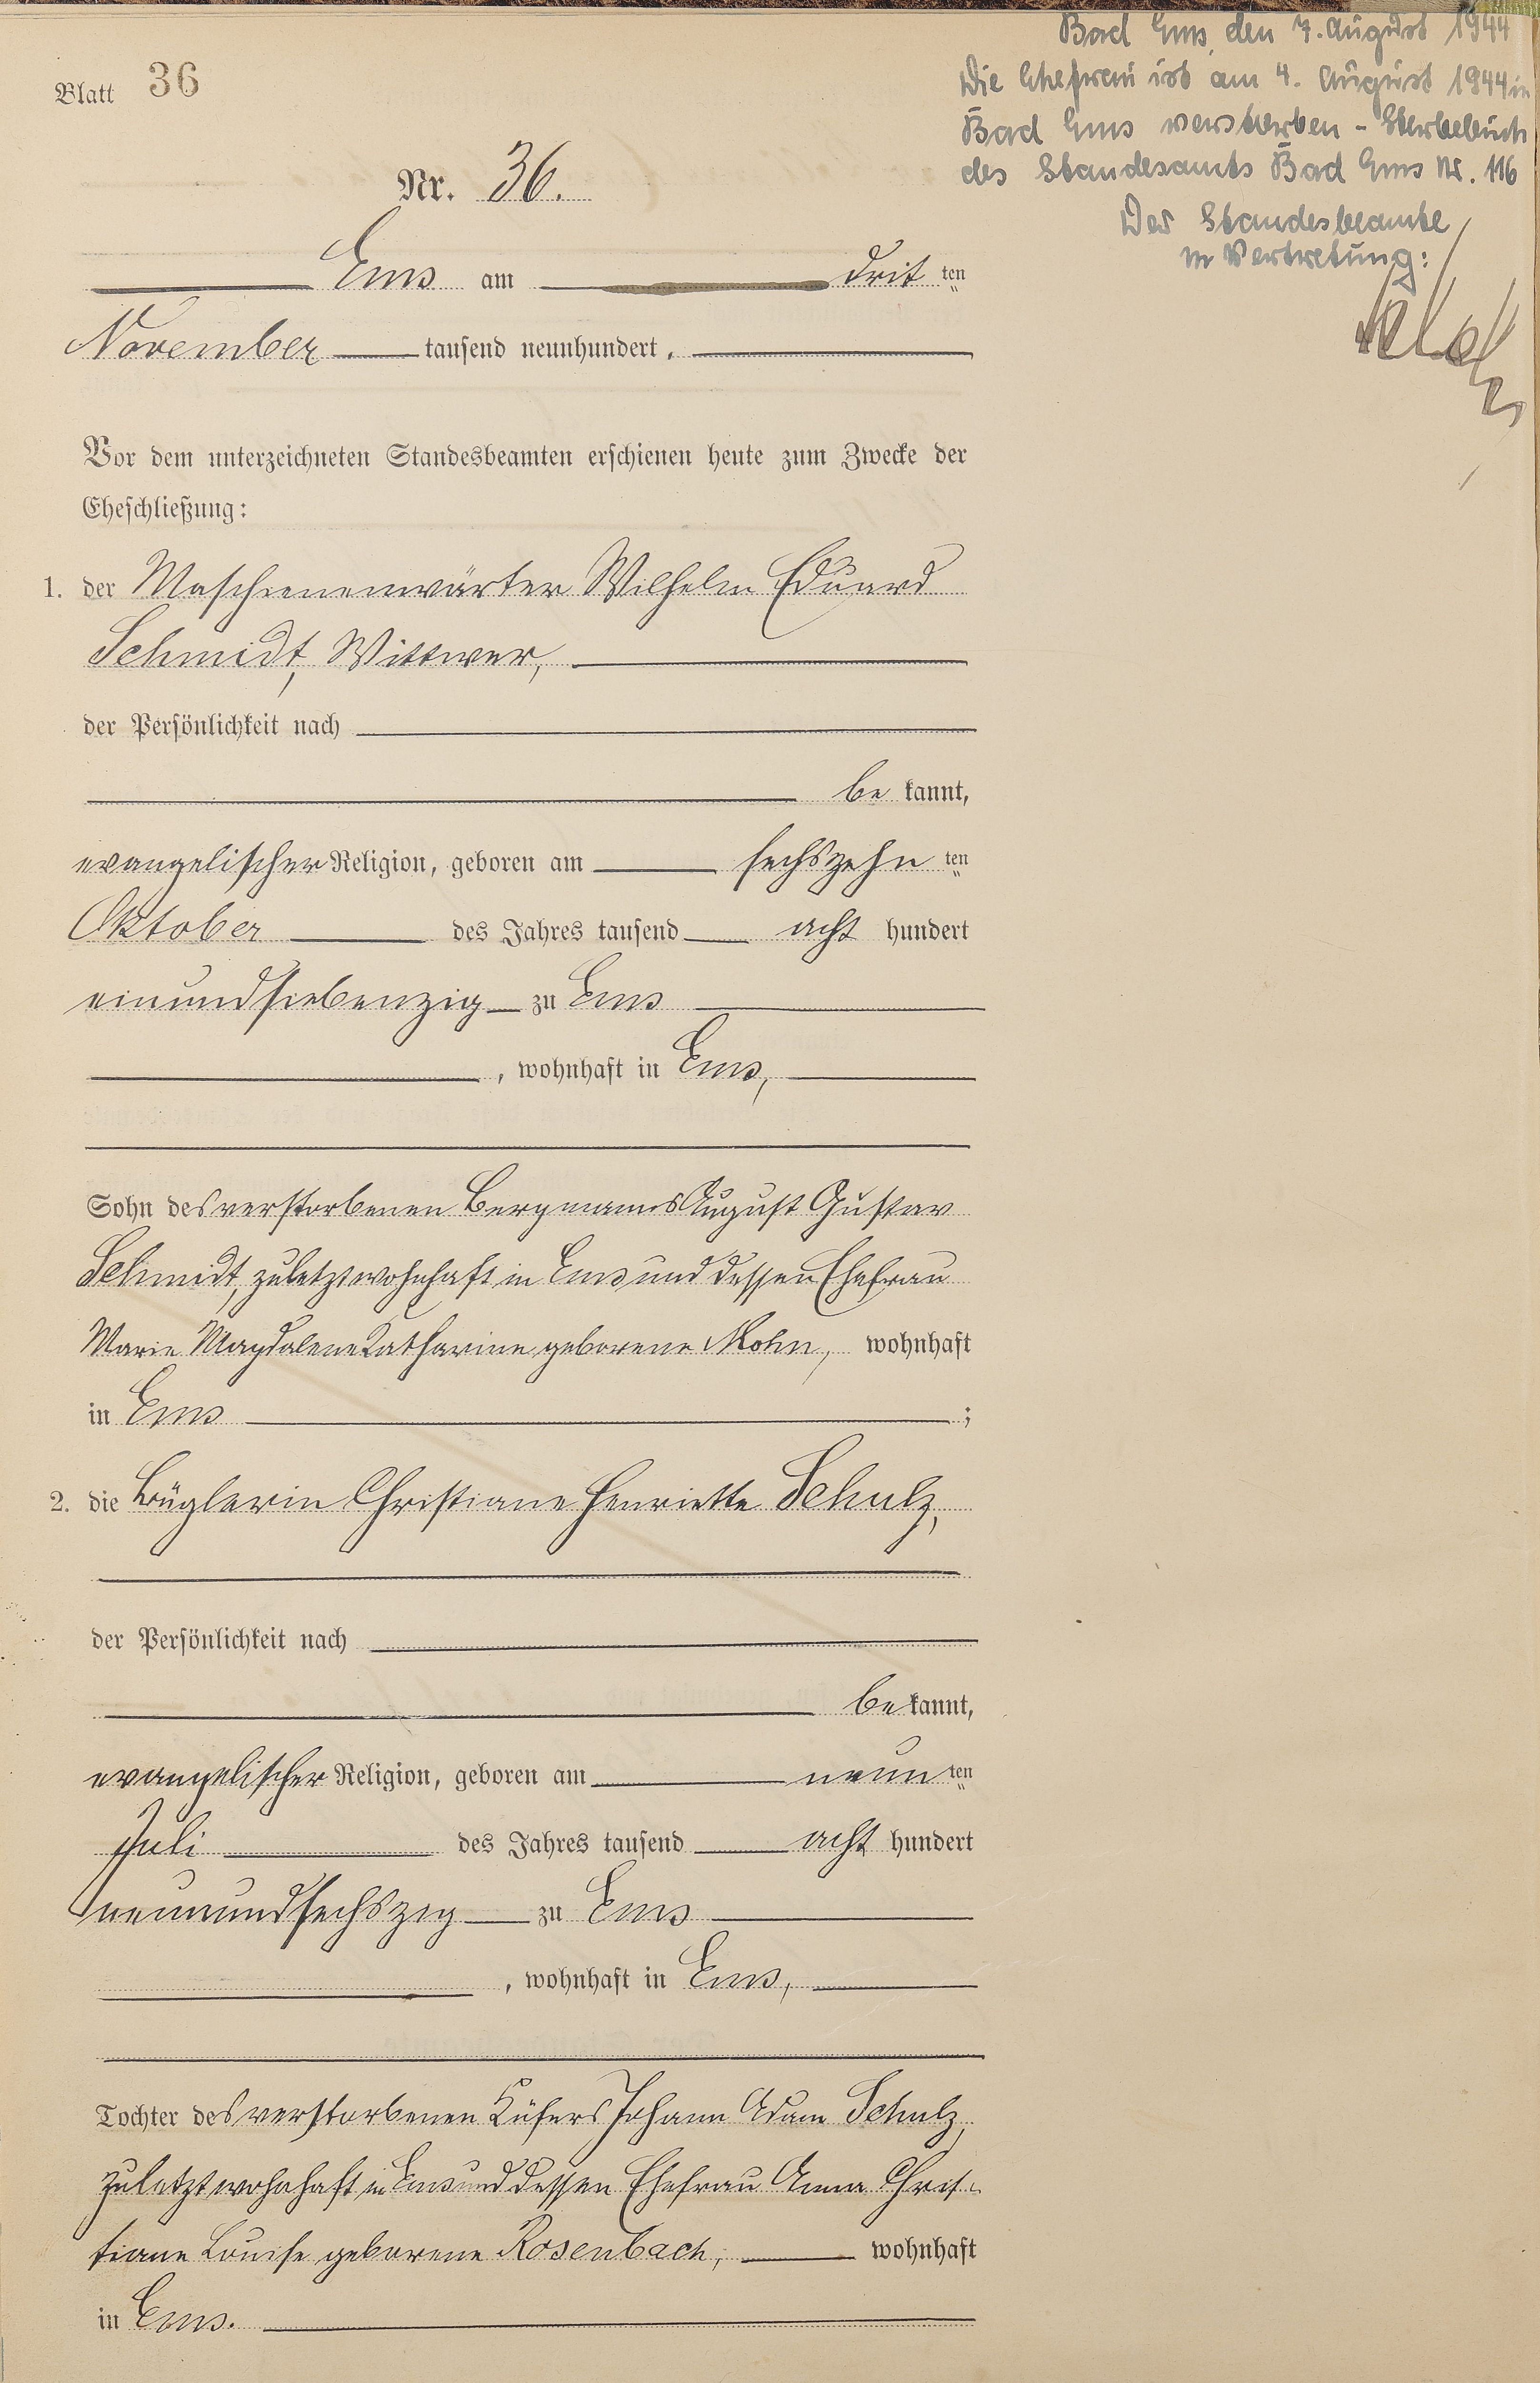 Blatt 36
Bad Ems, den 7. August 1944
Die Ehefrau ist am 4. August 1944 in
Bad Ems verstorben - Sterbebuch
des Standesamts Bad Ems Nr. 116
Der Standesbeamte
in Vertretung:
Nr. 36.
Ems am drit ten
November tausend neunhundert.
Vor dem unterzeichneten Standesbeamten erschienen heute zum Zwecke der
Eheschließung:
1. der Maschienenwärter Wilhelm Eduard
Schmidt, Wittwer,
der Persönlichkeit nach
be kannt,
evangelischer Religion, geboren am sechszehn ten
Oktober des Jahres tausend acht hundert
einundsiebenzig zu Ems
, wohnhaft in Ems,
Sohn des verstorbenen Bergmanns August Gustav
Schmidt, zuletzt wohnhaft in Ems und dessen Ehefrau
Marie Magdalene Katharine geborene Mohn, wohnhaft
in Ems ;
2. die Büglerin Christiane Henriette Schulz,
der Persönlichkeit nach
be kannt,
evangelischer Religion, geboren am neun ten
Juli des Jahres tausend acht hundert
neunundsechszig zu Ems
, wohnhaft in Ems,
Tochter des verstorbenen Küfers Johann Adam Schulz,
zuletzt wohnhaft in Ems und dessen Ehefrau Anna Chris-
tiane Louise geborene Rosenbach, wohnhaft
in Ems.